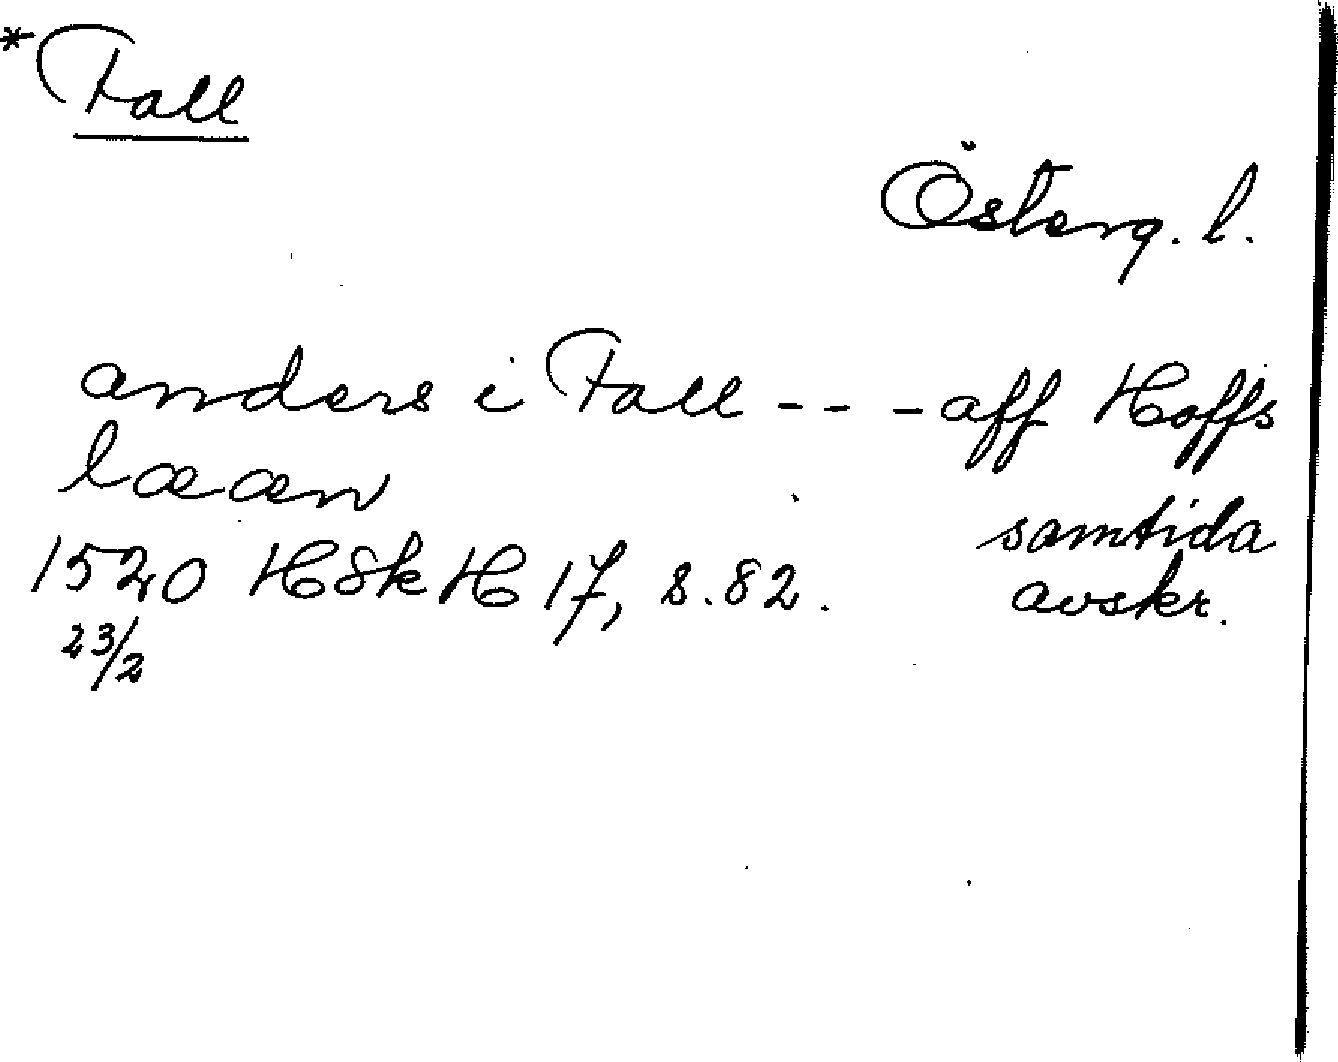 *Fall
Österg. l.
anders i Fall - - - aff Hoffs
læææn
1520 HSkH 17, s. 82.
samtida
avskr.
23/2